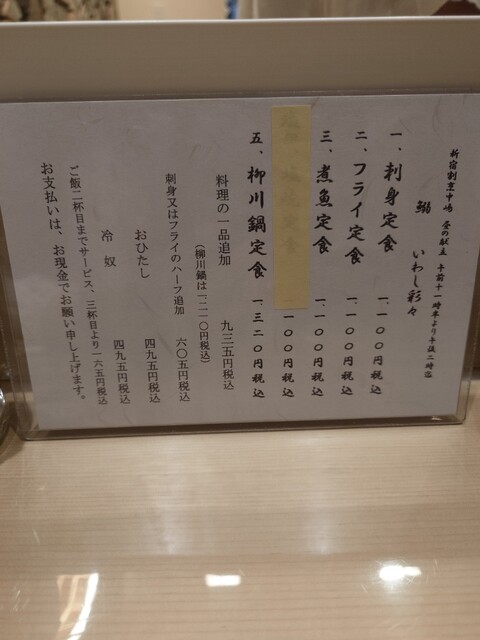 新宿割烹中嶋 昼の献立 午前十一時半より午後二時迄
鰯 いわし彩々
一、刺身定食 一、一〇〇円税込
二、フライ定食 一、一〇〇円税込
三、煮魚定食 一、一〇〇円税込
一〇〇円税込
五、柳川鍋定食 一、三二〇円税込
料理の一品追加 九三五円税込
（柳川鍋は一二一〇円税込）
刺身又はフライのハーフ追加 六〇五円税込
おひたし 四九五円税込
冷奴 四九五円税込
ご飯二杯目までサービス、三杯目より一六五円税込
お支払いは、お現金でお願い申し上げます。